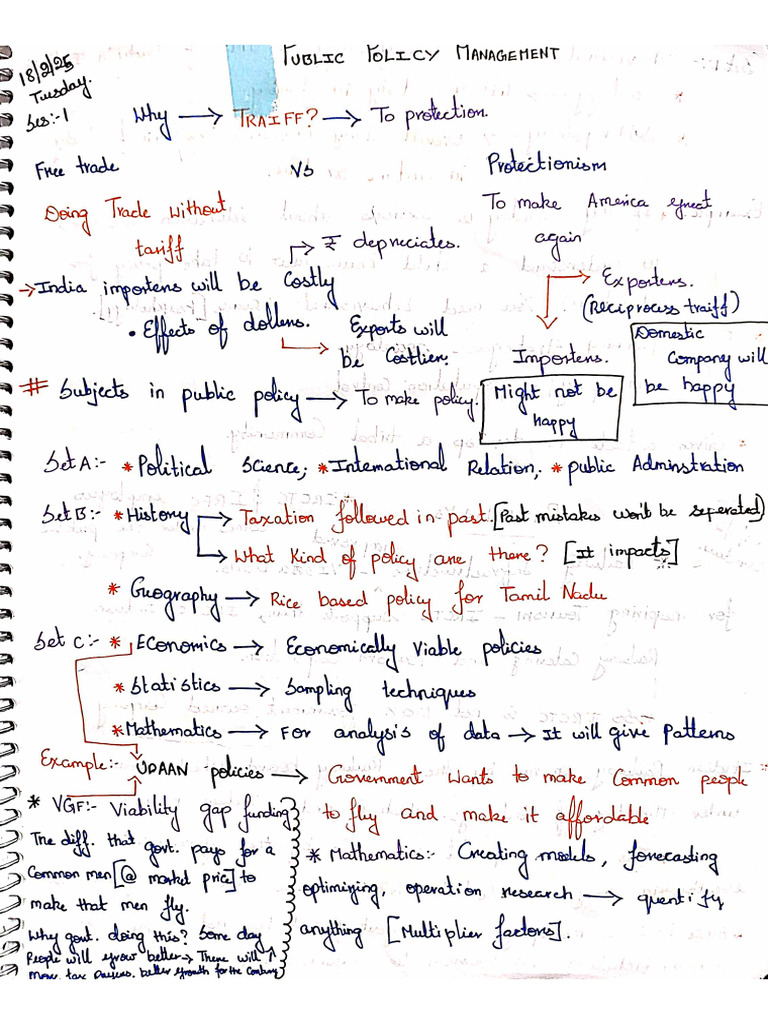 PUBLIC POLICY MANAGEMENT
18/2/25
Tuesday.
Ses:-1
Why → TRAIFF? → To protection.
Free trade Vs Protectionism
Doing Trade without tariff
To make America great again
₹ depreciates.
→ India importers will be Costly
• Effects of dollers.
Exports will be Costlier.
Exporters.
(Reciprocss traiff)
Domestic Company will be happy
Importers.
Might not be happy
# Subjects in public policy → To make policy.
Set A:- *Political Science; *International Relation; *public Adminstration
Set B:- *History → Taxation followed in past. [Past mistakes won't be seperated]
→ What Kind of policy are there? [It impacts]
* Geography → Rice based policy for Tamil Nadu
Set C:- * Economics → Economically Viable policies
*Statistics → Sampling techniques
*Mathematics → For analysis of data → It will give Patterns
Example:- UDAAN policies → Government wants to make Common people
to fly and make it affordable
* VGF:- Viability gap funding
The diff. that govt. pays for a
Common men [@ market price] to
make that men fly.
Why govt. doing this? Some day
People will grow better → There will ↑
More tax payers. better growth for the Country
* Mathematics:- Creating models, forecasting
optimizing, operation research → quentify
anything [Multiplier factors].